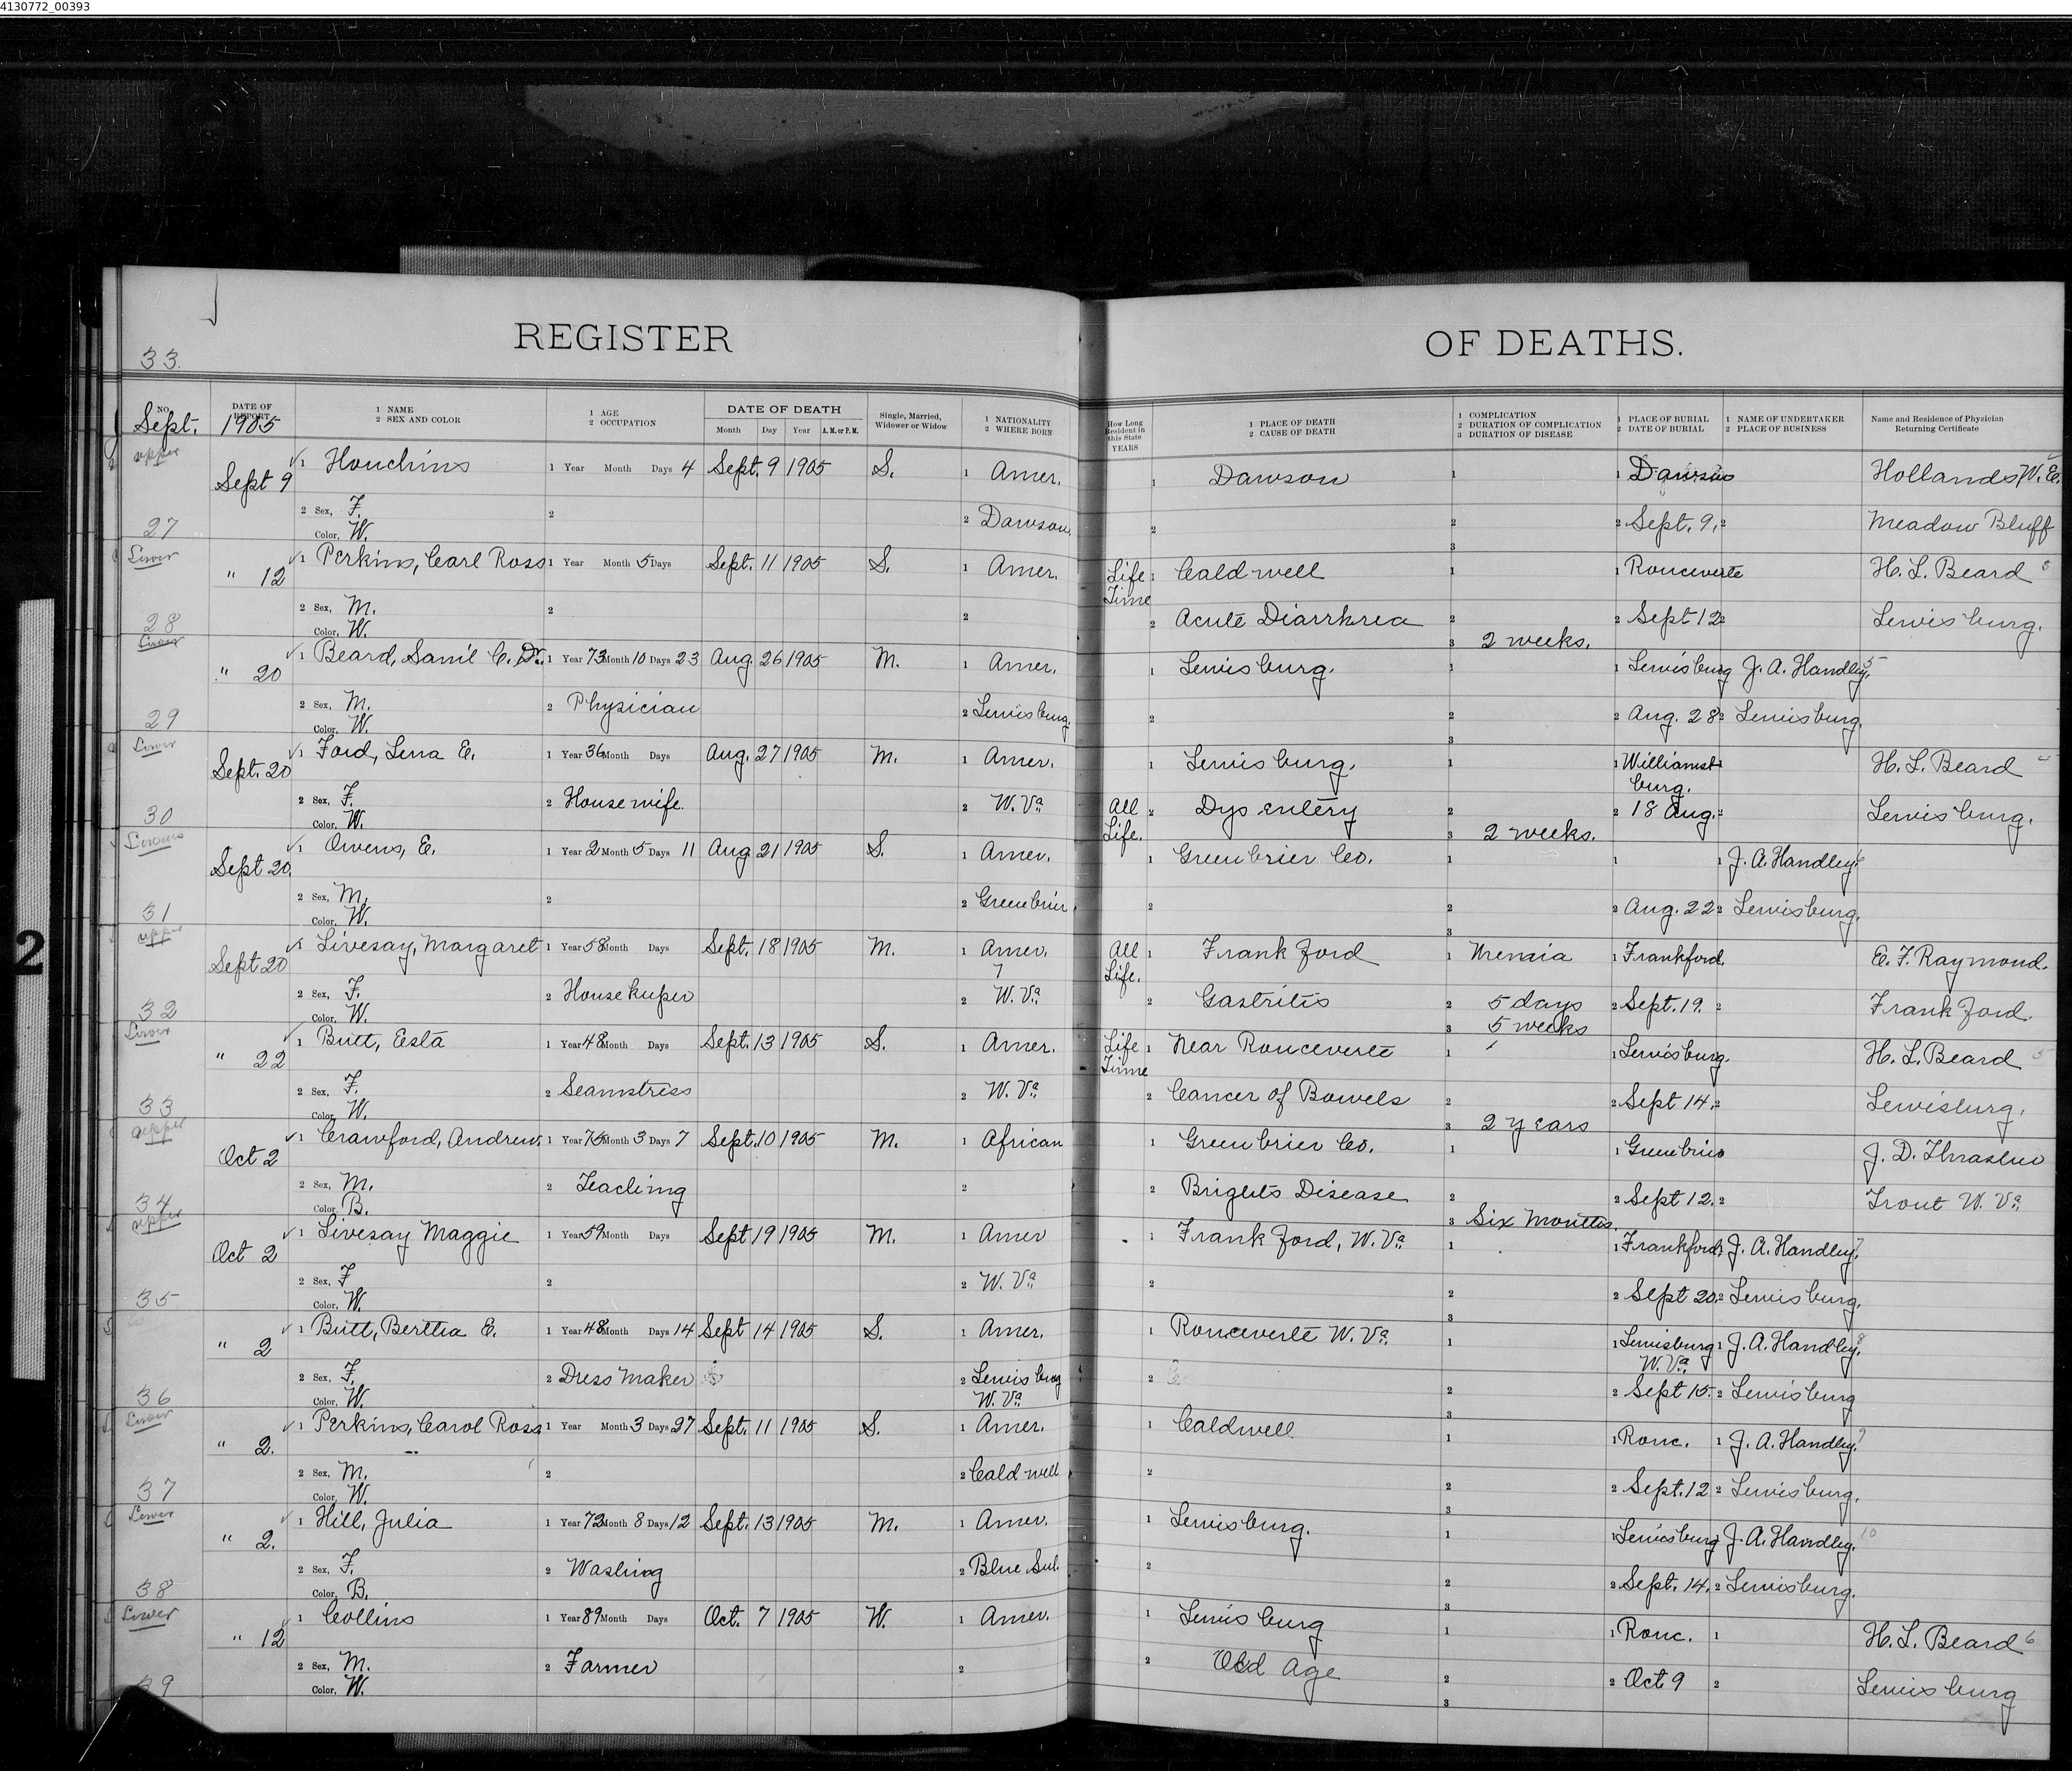 4130772_00393
REGISTER OF DEATHS.
33.
NO. DATE OF REPORT 1 NAME 2 SEX AND COLOR 1 AGE 2 OCCUPATION DATE OF DEATH Month Day Year A.M. or P.M. Single, Married, Widower or Widow 1 NATIONALITY 2 WHERE BORN How Long Resident in this State YEARS 1 PLACE OF DEATH 2 CAUSE OF DEATH 1 COMPLICATION 2 DURATION OF COMPLICATION 3 DURATION OF DISEASE 1 PLACE OF BURIAL 2 DATE OF BURIAL 1 NAME OF UNDERTAKER 2 PLACE OF BUSINESS Name and Residence of Physician Returning Certificate
Sept. 1905
upper Sept 9 1 Houchins 1 Year Month Days 4 Sept. 9 1905 S. 1 Amer. 1 Dawson 1 1 Dawson Hollands, W. E.
27 2 Sex, F. Color, W. 2 2 Dawson. 2 2 3 2 Sept. 9. 2 Meadow Bluff
Lower " 12 1 Perkins, Carl Ross 1 Year Month 5 Days Sept. 11 1905 S. 1 Amer. Life Time 1 Caldwell 1 1 Ronceverte H. L. Beard
28 2 Sex, M. Color, W. 2 2 2 Acute Diarrhrea 2 3 2 weeks. 2 Sept 12 2 Lewisburg.
Lower " 20 1 Beard, Sam'l C. Dr. 1 Year 73 Month 10 Days 23 Aug. 26 1905 M. 1 Amer. 1 Lewisburg. 1 1 Lewisburg J. A. Handley. 5
29 2 Sex, M. Color, W. 2 Physician 2 Lewisburg. 2 2 3 2 Aug. 28 2 Lewisburg.
Lower Sept. 20 1 Ford, Lena E. 1 Year 36 Month Days Aug. 27 1905 M. 1 Amer. 1 Lewisburg. 1 1 Williamsburg. 1 H. L. Beard
30 2 Sex, F. Color, W. 2 Housewife 2 W. Va. All Life. 2 Dysentery 2 3 2 weeks. 2 18 Aug. 2 Lewisburg.
Sept 20. 1 Owens, E. 1 Year 2 Month 5 Days 11 Aug 21 1905 S. 1 Amer. 1 Greenbrier Co. 1 1 1 J. A. Handley
31 2 Sex, M. Color, W. 2 2 Greenbrier. 2 2 3 2 Aug. 22 2 Lewisburg.
upper Sept 20 1 Livesay, Margaret 1 Year 58 Month Days Sept. 18 1905 M. 1 Amer. All Life. 1 Frankford 1 Uremia 1 Frankford. E. F. Raymond.
32 2 Sex, F. Color, W. 2 Housekeeper 2 W. Va. 2 Gastritis 2 5 days 3 5 weeks 2 Sept. 19. 2 Frankford.
Lower " 22 1 Butt, Esta 1 Year 48 Month Days Sept. 13 1905 S. 1 Amer. Life Time 1 Near Ronceverte 1 1 Lewisburg. H. L. Beard 5
33 2 Sex, F. Color, W. 2 Seamstress 2 W. Va. 2 Cancer of Bowels 2 3 2 years 2 Sept 14. 2 Lewisburg.
upper Oct 2 1 Crawford, Andrew. 1 Year 75 Month 3 Days 7 Sept. 10 1905 M. 1 African 1 Greenbrier Co. 1 1 Greenbrier J. D. Thrasher
34 2 Sex, M. Color, B. 2 Teaching 2 2 Brights Disease 2 3 Six Months. 2 Sept 12. 2 Trout W. Va.
upper Oct 2 1 Livesay Maggie 1 Year 59 Month Days Sept 19 1905 M. 1 Amer 1 Frankford, W. Va. 1 1 Frankford 1 J. A. Handley. 7
35 2 Sex, F Color, W. 2 2 W. Va. 2 2 3 2 Sept 20. 2 Lewisburg.
" 2 1 Butt, Bertha E. 1 Year 48 Month Days 14 Sept 14 1905 S. 1 Amer. 1 Ronceverte W. Va. 1 1 Lewisburg W. Va. 1 J. A. Handley. 8
36 2 Sex, F. Color, W. 2 Dress maker 2 Lewisburg W. Va. 2 2 3 2 Sept 15. 2 Lewisburg
Lower " 2. 1 Perkins, Carol Ross 1 Year Month 3 Days 27 Sept. 11 1905 S. 1 Amer. 1 Caldwell 1 1 Ronc. 1 J. A. Handley. 9
37 2 Sex, M. Color, W. 2 2 Caldwell 2 2 3 2 Sept. 12 2 Lewisburg.
Lower " 2. 1 Hill, Julia 1 Year 72 Month 8 Days 12 Sept. 13 1905 M. 1 Amer. 1 Lewisburg. 1 1 Lewisburg J. A. Handley. 10
38 2 Sex, F. Color, B. 2 Washing 2 Blue Sul. 2 2 3 2 Sept. 14. 2 Lewisburg.
Lower " 12 1 Collins 1 Year 89 Month Days Oct. 7 1905 W. 1 Amer. 1 Lewisburg 1 1 Ronc. 1 H. L. Beard 6
39 2 Sex, M. Color, W. 2 Farmer 2 2 Old age 2 3 2 Oct 9 2 Lewisburg
2